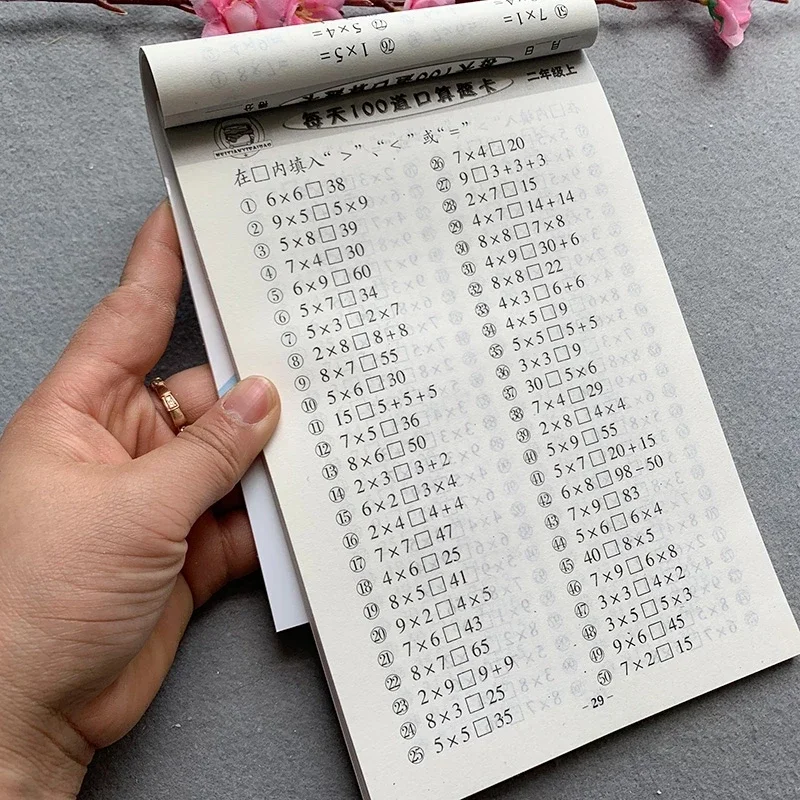 ⑯ 1×5=
⑰ 5×4=
�51 7×1=
每天100道口算题卡
二年级上
MEITIANYIPAIBAO
在□内填入“＞”、“＜”或“=”
① 6×6□38
② 9×5□5×9
③ 5×8□39
④ 7×4□30
⑤ 6×9□60
⑥ 5×7□34
⑦ 5×3□2×7
⑧ 2×8□8+8
⑨ 8×7□55
⑩ 5×6□30
⑪ 15□5+5+5
⑫ 7×5□36
⑬ 8×6□50
⑭ 2×3□3+2
⑮ 6×2□3×4
⑯ 2×4□4+4
⑰ 7×7□47
⑱ 4×6□25
⑲ 8×5□41
⑳ 9×2□4×5
㉑ 7×6□43
㉒ 8×7□65
㉓ 2×9□9+9
㉔ 8×3□25
㉕ 5×5□35
㉖ 7×4□20
㉗ 9□3+3+3
㉘ 2×7□15
㉙ 4×7□14+14
㉚ 8×8□7×8
㉛ 4×9□30+6
㉜ 8×8□22
㉝ 4×3□6+6
㉞ 4×5□9
㉟ 5×5□5+5
㊱ 3×3□9
㊲ 30□5×6
㊳ 7×4□29
㊴ 2×8□4×4
㊵ 5×9□55
㊶ 5×7□20+15
㊷ 6×8□98-50
㊸ 7×9□83
㊹ 5×6□6×4
㊺ 40□8×5
㊻ 7×9□6×8
㊼ 3×3□4×2
㊽ 3×5□5×3
㊾ 9×6□45
㊿ 7×2□15
-29-